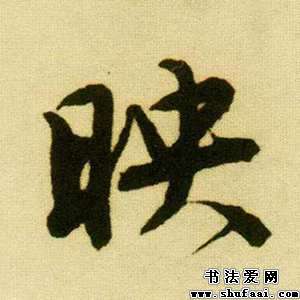 映
书法爱网
www.shufaai.com